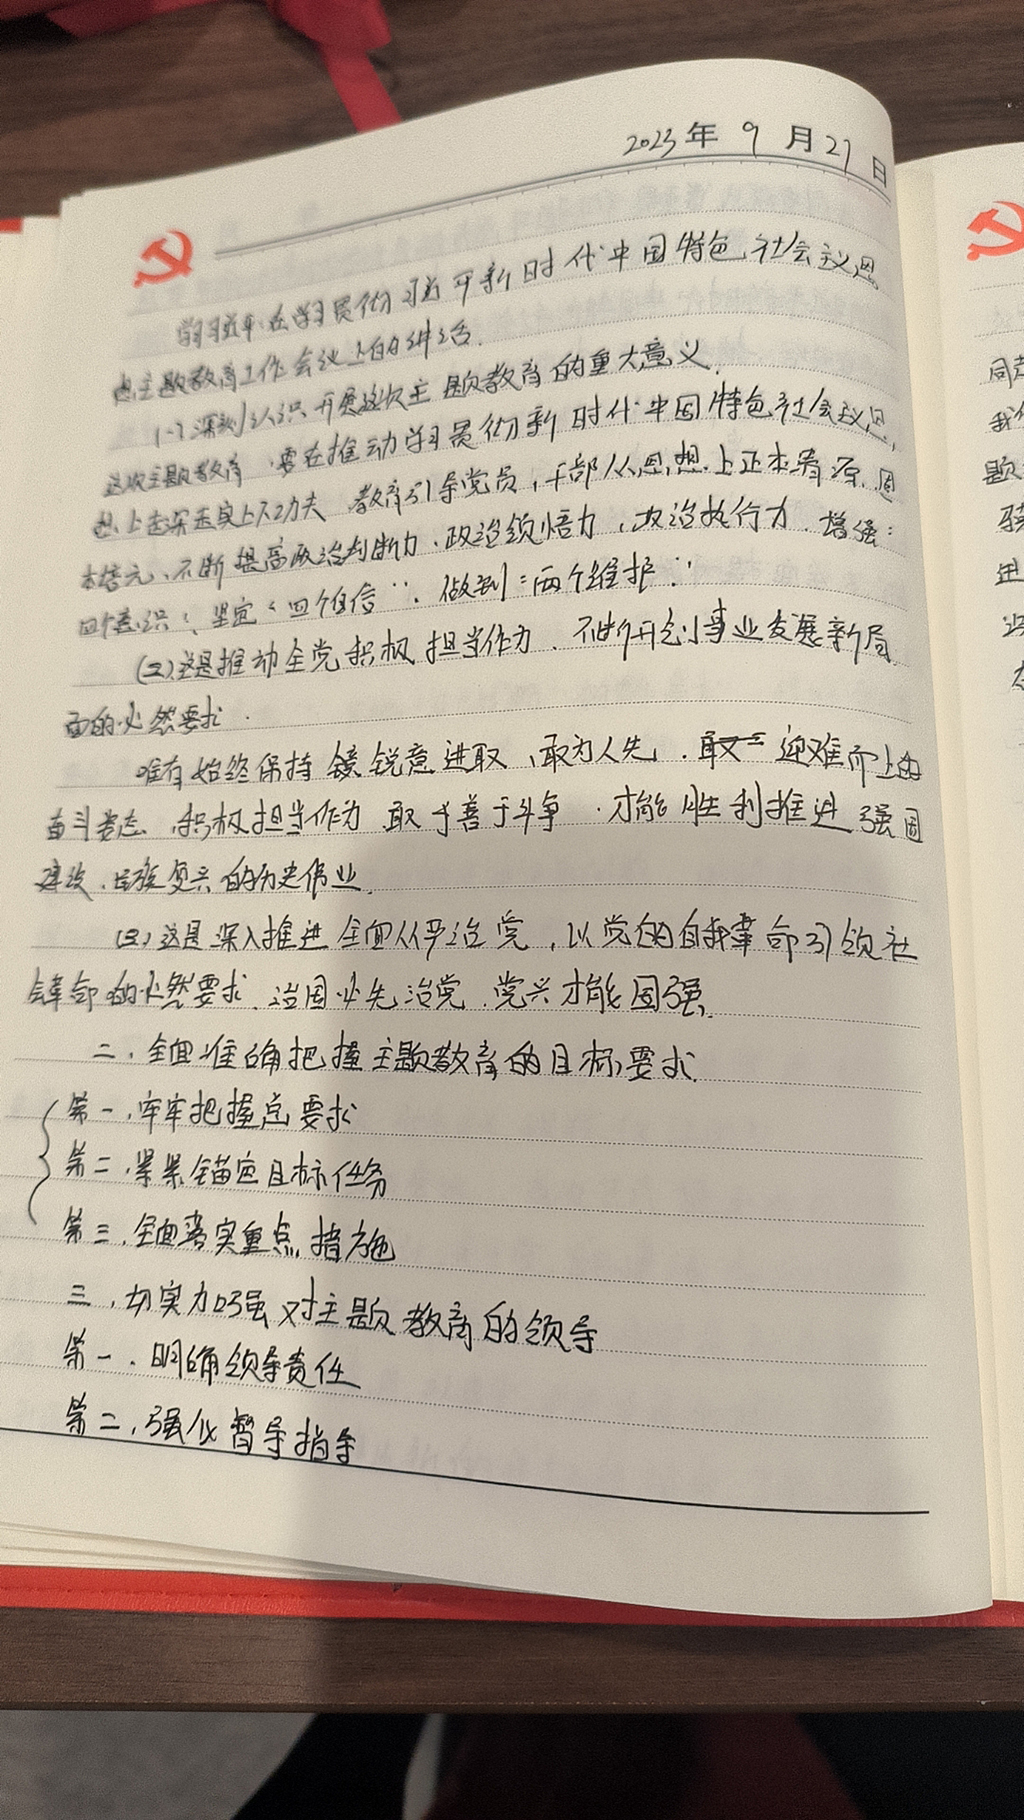 2023年 9 月 27 日
学习习近平:在学习贯彻习近平新时代中国特色社会主义思
想主题教育工作会议上的讲话.
(一)深刻认识开展这次主题教育的重大意义.
这次主题教育,要在推动学习贯彻新时代中国特色社会主义思
想上走深走实上下功夫 教育引导党员,干部从思想上正本清源.固
本培元、不断提高政治判断力、政治领悟力、政治执行力.增强“
四个意识”、坚定“四个自信”.做到“两个维护”.
(二)这是推动全党积极担当作为、不断开创事业发展新局
面的必然要求.
唯有始终保持镜锐意进取、敢为人先.迎难而上的
奋斗姿态,积极担当作为 敢于善于斗争.才能胜利推进强国
建设、民族复兴的历史伟业.
(三)这是深入推进全面从严治党,以党的自我革命引领社
会革命的必然要求.治国必先治党.党兴才能国强.
二.全面准确把握主题教育的目标要求.
第一.牢牢把握总要求
第二.紧紧锚定目标任务
第三.全面落实重点措施
三.切实加强对主题教育的领导
第一.明确领导责任
第二.强化督导指导
同
我
题